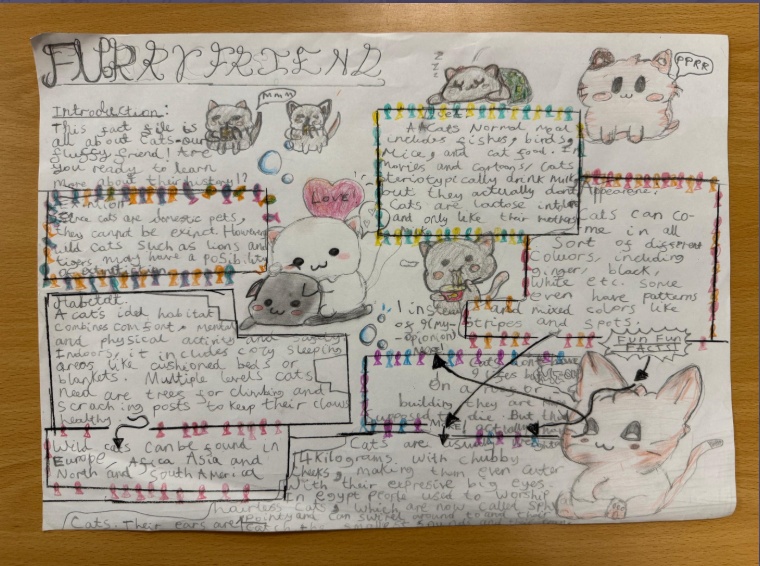 FURRY FRIEND
Introduction:
This fact file is
all about Cats-our
fluffy friend! Are
you ready to learn
more about their history!?
MMM
ZZZ
PPRR
Love!
A Cats Normal meal
includes fishes, birds,
Mice, and cat food. In
movies and cartoons, Cats
steriotypically drink Milk
but they actually dont
Cats are lactose
and only like their mothers
Appearence:
Cats can co-
me in all
Sort of different
Colours, including
ginger, black,
White etc. Some
even have patterns
and mixed colors like
stripes and spots.
cats are domestic pets,
they cannot be exinct. However
wild cats such as lions and
tigers may have a posibility
of extinction
Habitat:
A cat's idel habitat
combines comfort, mental
and physical activity and
Indoors, it includes cozy sleeping
areas like cushioned beds or
blankets. Multiple levels cats
need are trees for climbing and
scraching posts to keep their claws
healthy.
Wild cats can be found in
Europe Africa Asia and
North and South America
FUN FUN
FACTS!
MORE!
building they are
supposed to die. But
Cats are
4 Kilograms, with chubby
cheeks, making them even cuter
With their expresive big eyes
In Egypt people used to worship
hairless cats, which are now called
Cats. Their ears are
pointy and can swivel around to and their